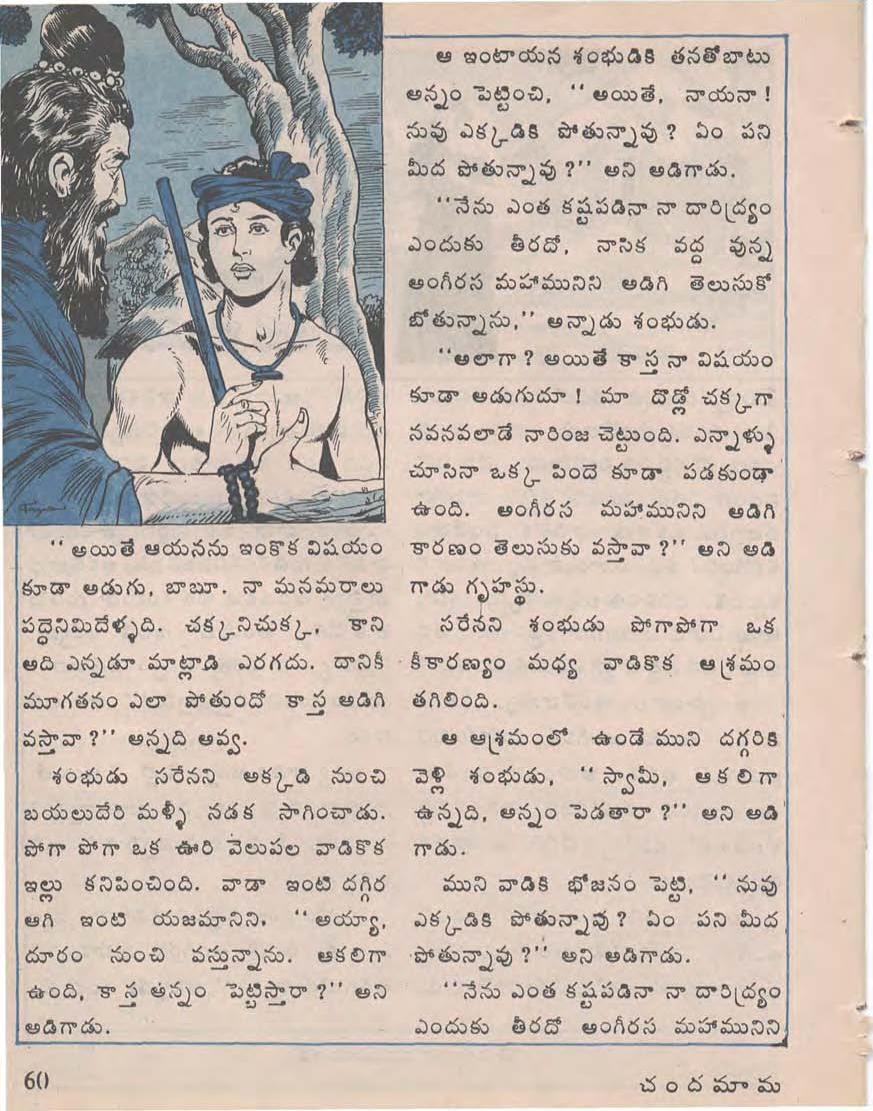 "అయితే ఆయనను ఇంకొక విషయం
కూడా అడుగు, బాబూ. నా మనమరాలు
పద్దెనిమిదేళ్ళది. చక్కనిచుక్క, కాని
అది ఎన్నడూ మాట్లాడి ఎరగదు. దానికీ
మూగతనం ఎలా పోతుందో కాస్త అడిగి
వస్తావా?" అన్నది అవ్వ.
శంభుడు సరేనని అక్కడి నుంచి
బయలుదేరి మళ్ళీ నడక సాగించాడు.
పోగా పోగా ఒక ఊరి వెలుపల వాడికొక
ఇల్లు కనిపించింది. వాడా ఇంటి దగ్గిర
ఆగి ఇంటి యజమానిని, "అయ్యా,
దూరం నుంచి వస్తున్నాను. ఆకలిగా
ఉంది, కాస్త అన్నం పెట్టిస్తారా?" అని
అడిగాడు.
ఆ ఇంటాయన శంభుడికి తనతోబాటు
అన్నం పెట్టించి, "అయితే, నాయనా!
నువు ఎక్కడికి పోతున్నావు? ఏం పని
మీద పోతున్నావు?" అని అడిగాడు.
"నేను ఎంత కష్టపడినా నా దారిద్ర్యం
ఎందుకు తీరదో, నాసిక వద్ద వున్న
అంగీరస మహామునిని అడిగి తెలుసుకో
బోతున్నాను," అన్నాడు శంభుడు.
"అలాగా? అయితే కాస్త నా విషయం
కూడా అడుగుదూ! మా దొడ్లో చక్కగా
నవనవలాడే నారింజ చెట్టుంది. ఎన్నాళ్ళు
చూసినా ఒక్క పిందె కూడా పడకుండా
ఉంది. అంగీరస మహామునిని అడిగి
కారణం తెలుసుకు వస్తావా?" అని అడి
గాడు గృహస్థు.
సరేనని శంభుడు పోగాపోగా ఒక
కీకారణ్యం మధ్య వాడికొక ఆశ్రమం
తగిలింది.
ఆ ఆశ్రమంలో ఉండే ముని దగ్గరికి
వెళ్లి శంభుడు, "స్వామీ, ఆకలిగా
ఉన్నది, అన్నం పెడతారా?" అని అడి
గాడు.
ముని వాడికి భోజనం పెట్టి, "నువు
ఎక్కడికి పోతున్నావు? ఏం పని మీద
పోతున్నావు?" అని అడిగాడు.
"నేను ఎంత కష్టపడినా నా దారిద్ర్యం
ఎందుకు తీరదో అంగీరస మహామునిని
60
చందమామ